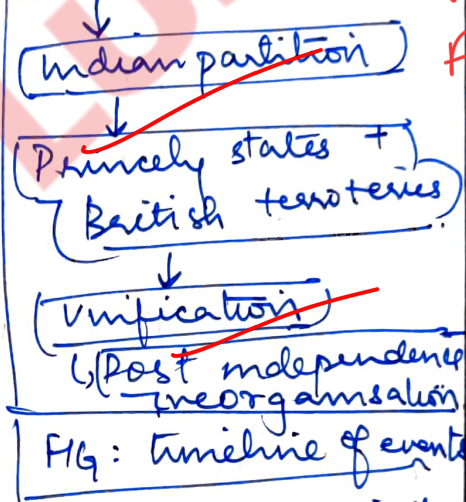 Indian partition
Princely states +
British terroteries
Unification
↳ Post independence
reorganisation
FIG: timeline of events